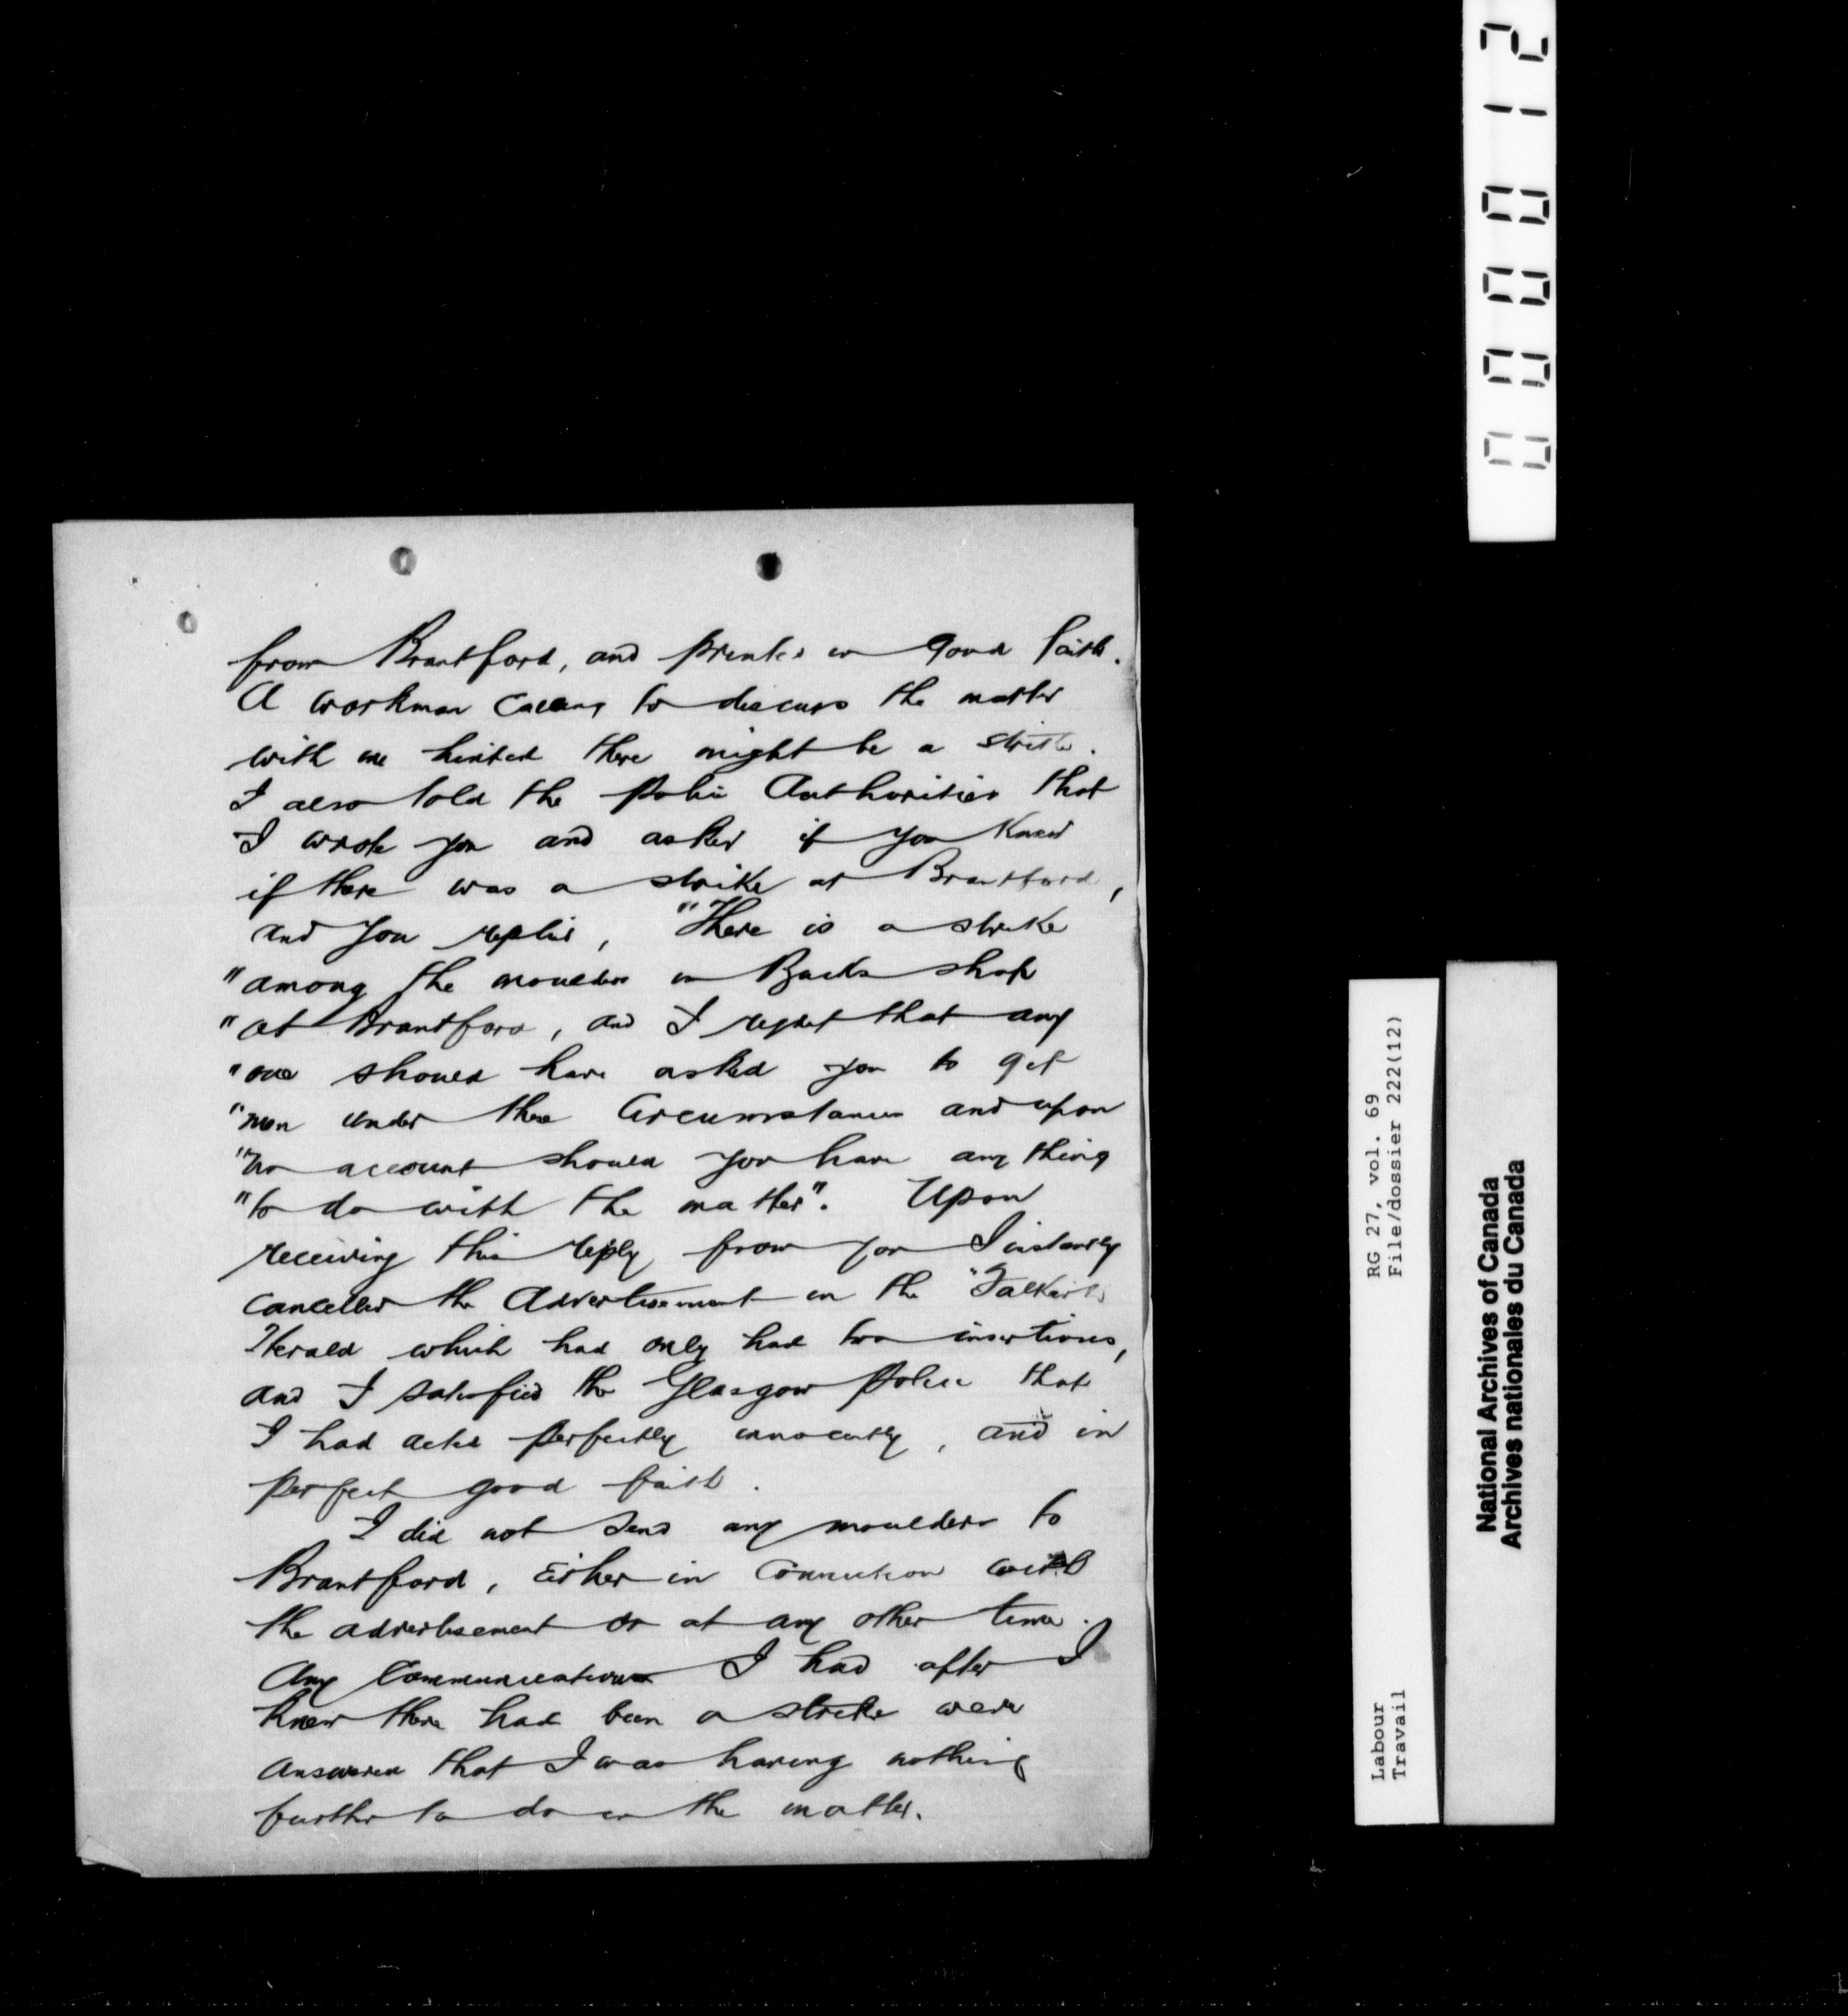 from Brantford, and printed in good faith.
A workman calling to discuss the matter
with me hinted there might be a strike.
I also told the Police Authorities that
I wrote you and asked if you knew
if there was a strike at Brantford,
and you replied, "There is a strike
"among the moulders in Bucks shop
"at Brantford, and I regret that any
"one should have asked you to get
"men under these circumstances and upon
"no account should you have anything
"to do with the matter". Upon
receiving this reply from you I instantly
cancelled the Advertisement in the "Falkirk
Herald which had only had two insertions,
and I satisfied the Glasgow Police that
I had acted perfectly innocently, and in
perfect good faith.
I did not send any moulders to
Brantford, Either in Connection with
the advertisement or at any other time.
Any Communications I had after I
knew there had been a strike were
answered that I was having nothing
further to do in the matter.
000012
RG 27, vol. 69
File/dossier 222(12)
Labour
Travail
National Archives of Canada
Archives nationales du Canada